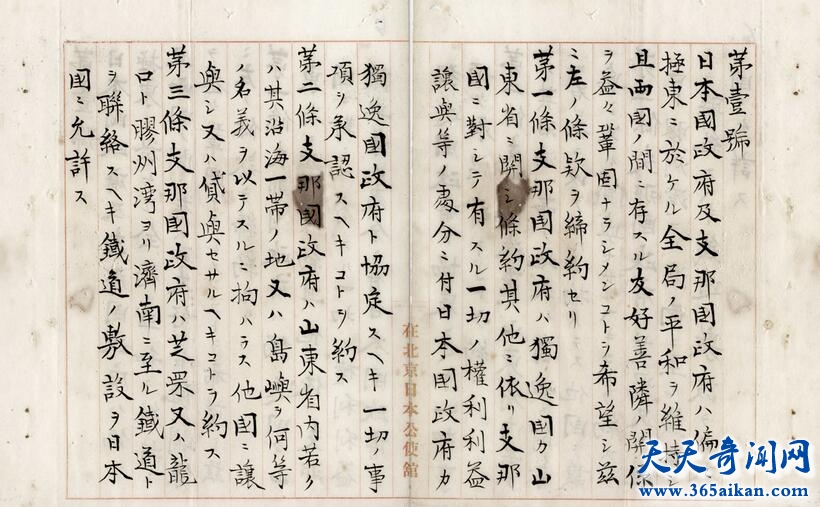 第壹號
日本國政府及支那國政府ハ偏ニ
極東ニ於ケル全局ノ平和ヲ維持シ
且両國ノ間ニ存スル友好善隣ノ関係
ヲ益々鞏固ナラシメンコトヲ希望シ茲
ニ左ノ條款ヲ締約セリ
第一條支那國政府ハ獨逸國カ山
東省ニ関シ條約其他ニ依リ支那
國ニ對シテ有スル一切ノ權利利益
讓與等ノ處分ニ付日本國政府カ
在北京日本公使館
獨逸國政府ト協定スヘキ一切ノ事
項ヲ承認スヘキコトヲ約ス
第二條支那國政府ハ山東省内若ク
ハ其沿海一帯ノ地又ハ島嶼ヲ何等
ノ名義ヲ以テスルニ拘ハラス他國ニ讓
與シ又ハ貸與セサルヘキコトヲ約ス
第三條支那國政府ハ芝罘又ハ龍
口ト膠州湾ヨリ濟南ニ至ル鐵道ト
ヲ聯絡スヘキ鐵道ノ敷設ヲ日本
國ニ允許ス
天天奇闻网
www.365aikan.com